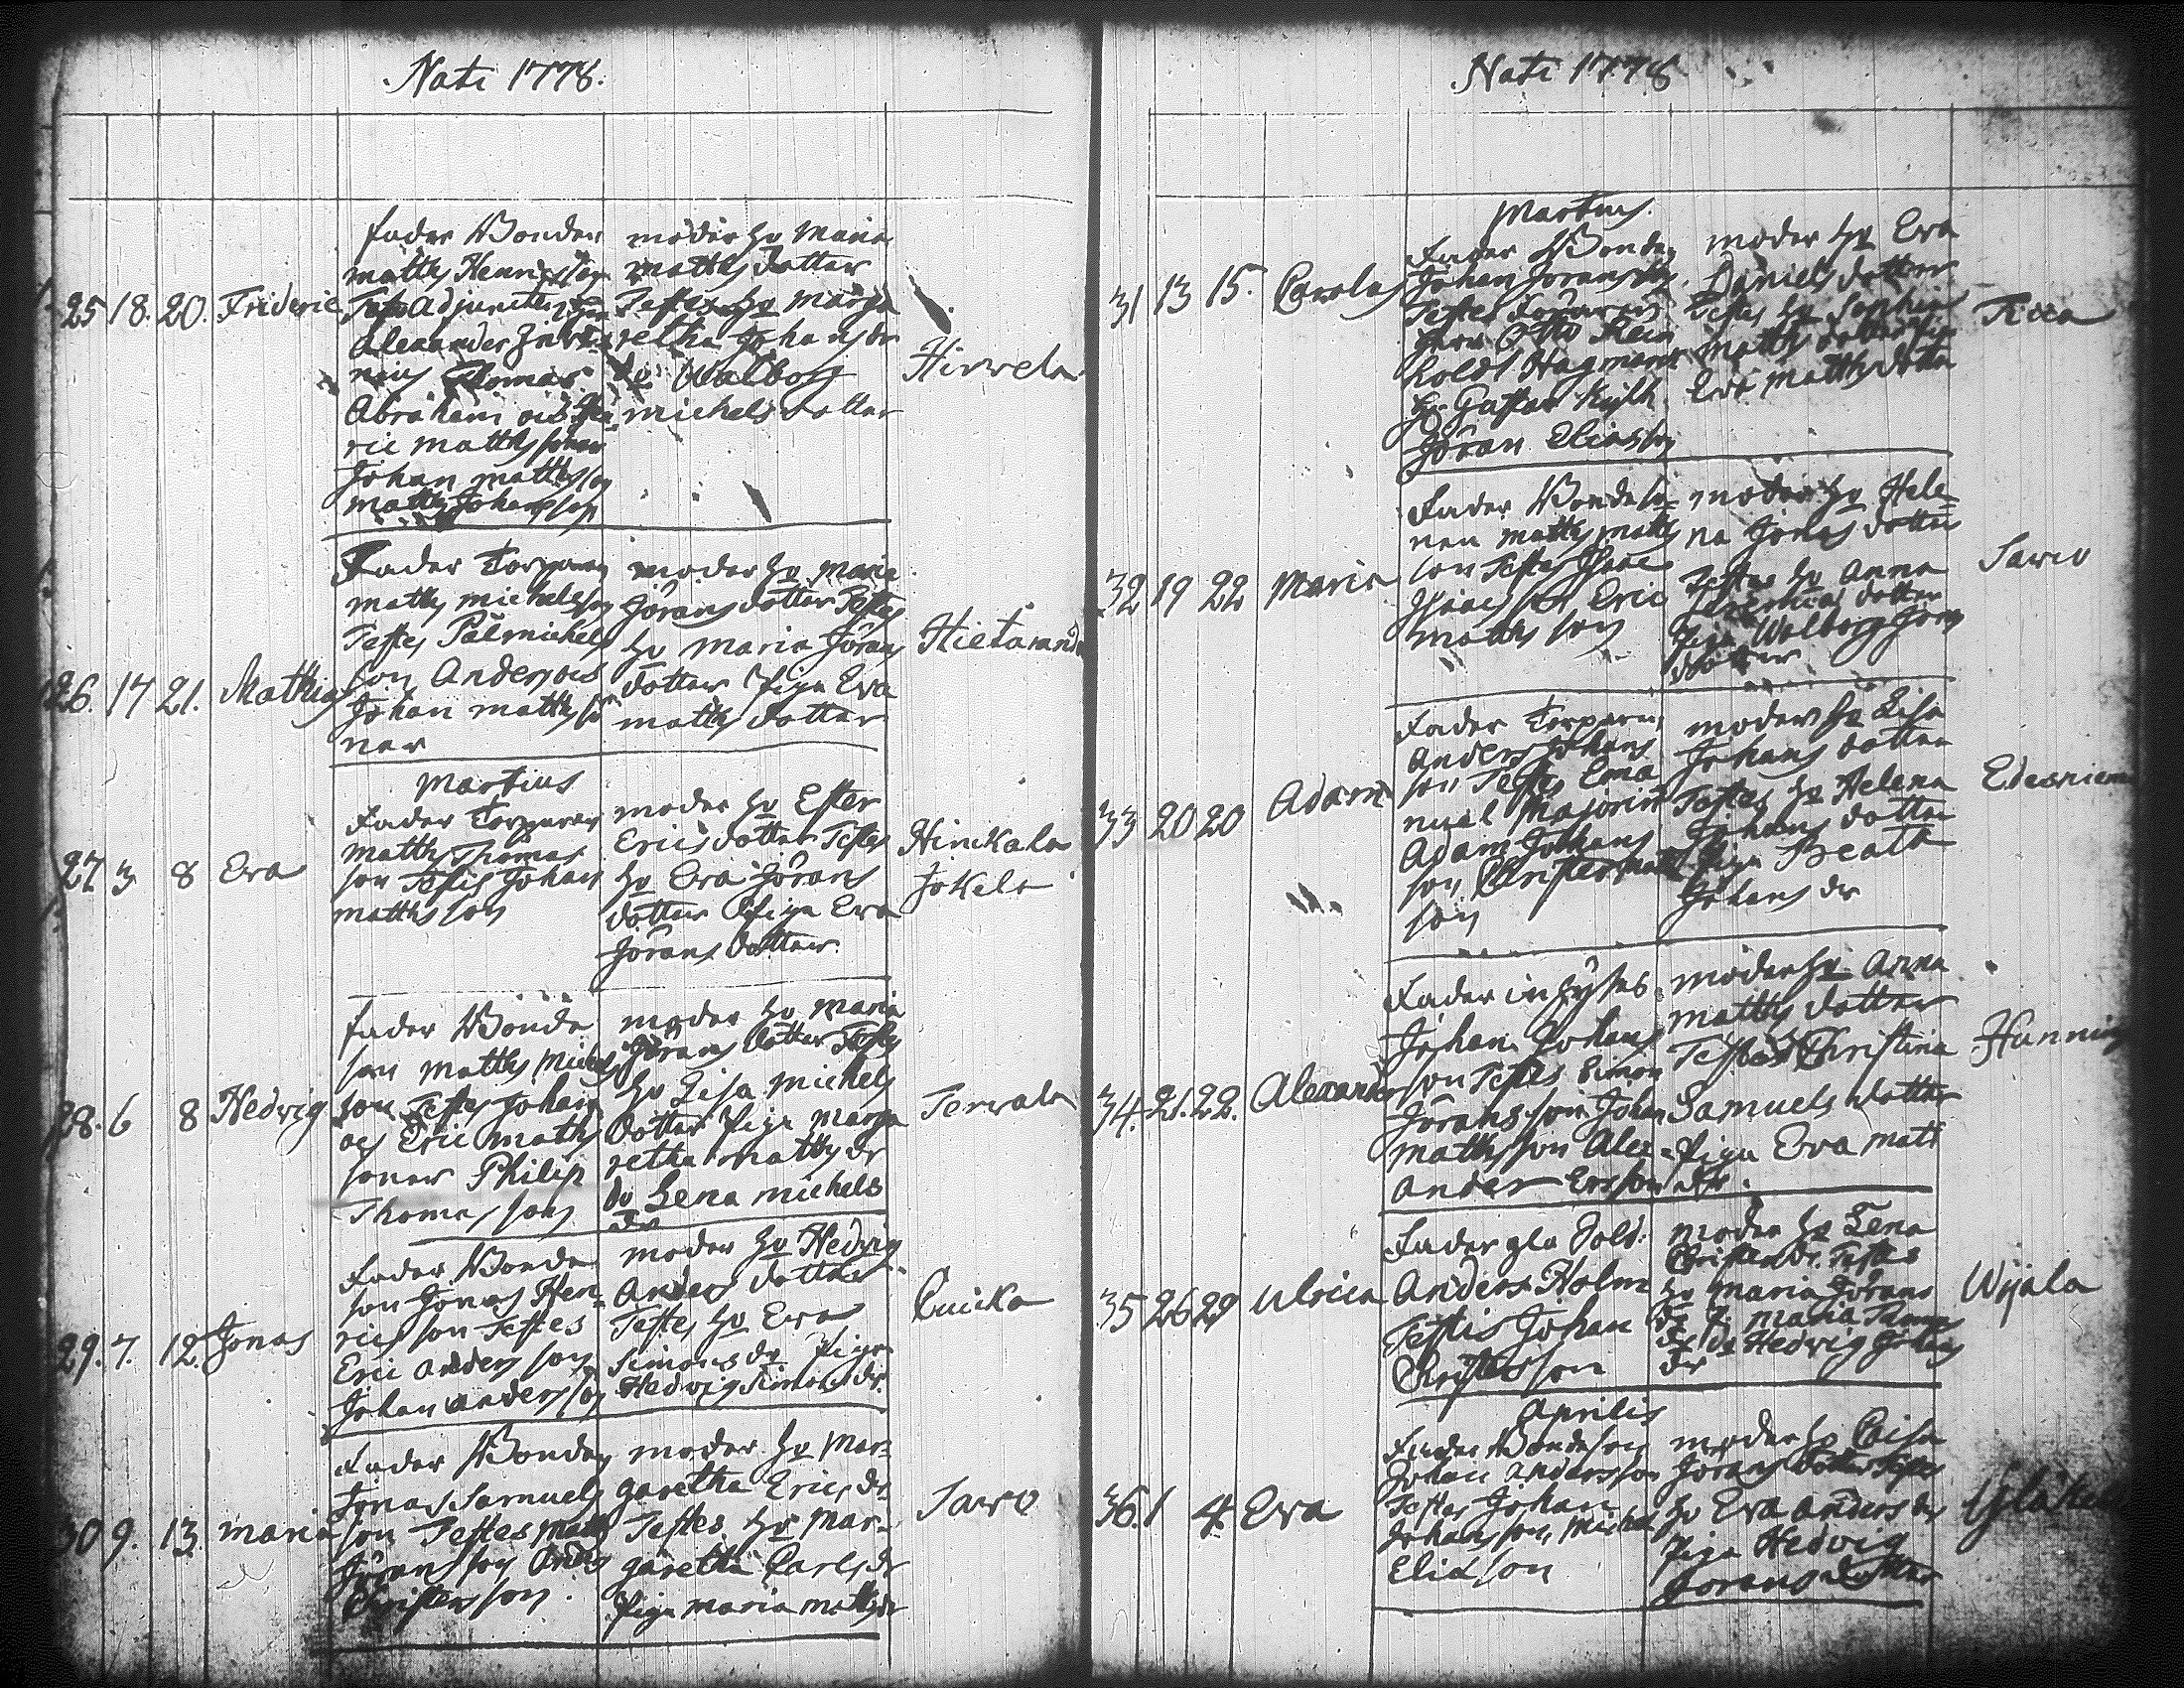 Nati 1778.
25 18. 20. Frideric
Fader Bonden
Matths Henricsson
Test. Adjuncten Herr
Alexander
Thomas
Abraham och Hen
ric Matthssoner
Johan Mattsson
Matths Johansson
moder Hu Maria
Matths dotter
Testes Hu Marga
retha Johans dr
do Walborg
Michels dotter
Hirvela
26. 17 21. Mathias
Fader Torparen
Matths Michelsson
Testes Pål Michels
son Anders och
Johan Matths so
ner
moder Hu Maria
Jörans dotter Testes
Hu Maria Jörans
dotter Piga Eva
Matths dotter
Hietaranda
Martius
27 3 8 Eva
Fader Torparen
Matths Thomas
son Testis Johan
Matths son
moder Hu Ester
Erics dotter Testes
Hu Eva Jörans
dotter Piga Eva
Jörans dotter
Hinikala
Jokela
28. 6 8 Hedvig
Fader Bonde
son Matths Michels
son Testes Johan
och Eric Matths
soner Philip
Thomas son
moder Hu Maria
Jörans dotter Testes
Hu Lisa Michels
dotter Piga Marga
retha Matths dr
do Lena Michels
dr
Terwala
29. 7. 12. Jonas
Fader Bonde
son Jonas Hen
rics son Testes
Eric Anders son
Johan Andersson
moder Hu Hedvig
Anders dotter
Testes Hu Eva
Simons dr Piga
Hedvig Simons dr.
Cuicka
30 9. 13 Maria
Fader Bonden
Jonas Samuels
son Testes Matts
Jöransson Anders
Christersson.
moder Hu Mar-
garetha Erics dr
Testes Hu Mar-
garetha Carls dr
Piga Maria Matts dr
Sawo
Nati 1778
Martius.
31 13 15. Carolus
Fader Bonden
Johan Jöransson.
Testes
Herr Otto Rein
hold Hagman
Hr Gustav
Jöran Eliasson
moder Hu Eva
Daniels dotter
Testes Hu Sophia
Matths dotter Piga
Eva Matths dotter
Ticca
32 19 22 Maria
Fader Bonde so
nen Matths Matths
son Testes Isaac
Isaacs son Eric
Matths son
moder Hu Hele-
na Jonas dotter
Testes Hu Anna
Jeremias dotter
Piga Walborg Jörans
dotter
Sawo
33 20 20 Adam
Fader Torparen
Anders Johans
son Testes Ema
nuel Majorin
Adam Johans
son Christer Matts
son
moder Hu Lisa
Johans dotter
Testes Hu Helena
Johans dotter
Piga Beata
Johans dr
Edesniemi
34. 21. 22. Alexander
Fader inhyses
Johan Johans
son Testes Simon
Jörans son Johan
Matths son Alex-
ander Ersson
moder Hu Anna
Matths dotter
Testes Christina
Samuels dotter
Piga Eva Matt
dr.
Hunning
35 26 29 Ulrica
Fader gla Sold.
Anders Holm
Testis Johan
Christersson
moder Hu Lena
Christers dr. Testes
Hu Maria Jörans
dr P. Maria
dr do Hedvig Johans
dr
Wijala
Aprilis
36. 1 4. Eva
Fader Bondeson
Johan Andersson
Testes Johan
Johansson, Michel
Eliasson
moder Hu Caisa
Jörans dotter Testes
Hu Eva Anders dr
Piga Hedvig
Jörans dotter